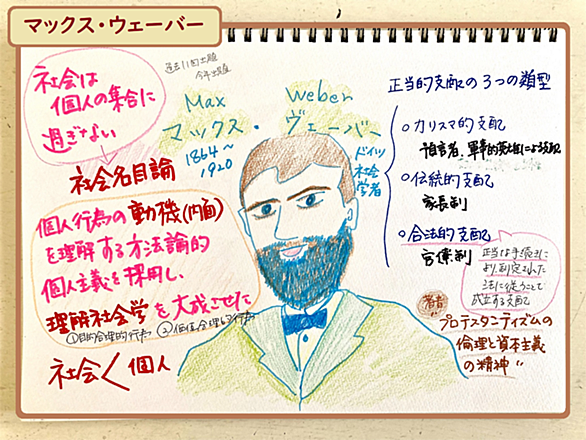 マックス・ウェーバー
社会は
個人の集合に
過ぎない
社会名目論
個人行為の動機(内面)
を理解する方法論的
個人主義を採用し、
理解社会学を大成させた
①目的合理的行為 ②価値合理的行為
社会く個人
過去11回出題
今年出題
Max Weber
マックス・ヴェーバー
1864〜
1920
ドイツ
社会
学者
正当的支配の3つの類型
○カリスマ的支配
預言者、軍事的英雄による支配
○伝統的支配
家長制
○合法的支配
官僚制
正当な手続きに
より制定された
法に従うことで
成立する支配
著書
"プロテスタンティズムの
倫理と資本主義
の精神"